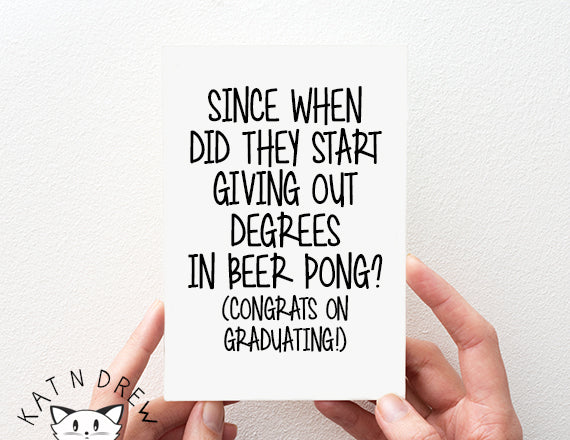 SINCE WHEN
DID THEY START
GIVING OUT
DEGREES
IN BEER PONG?
(CONGRATS ON
GRADUATING!)
KAT N DREW